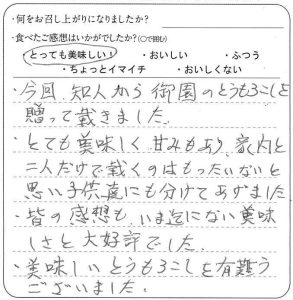 ・何をお召し上がりになりましたか?
・食べたご感想はいかがでしたか?(○で囲む)
とっても美味しい! ・おいしい ・ふつう
・ちょっとイマイチ ・おいしくない
・今回 知人から御園のとうもろこしを
贈って戴きました。
・とても美味しく甘みもあり、家内と
二人だけで戴くのはもったいないと
思い子供達にも分けてあげました
・皆の感想も、いま迄にない美味
しさと大好評でした。
・美味しいとうもろこしを有難う
ございました。